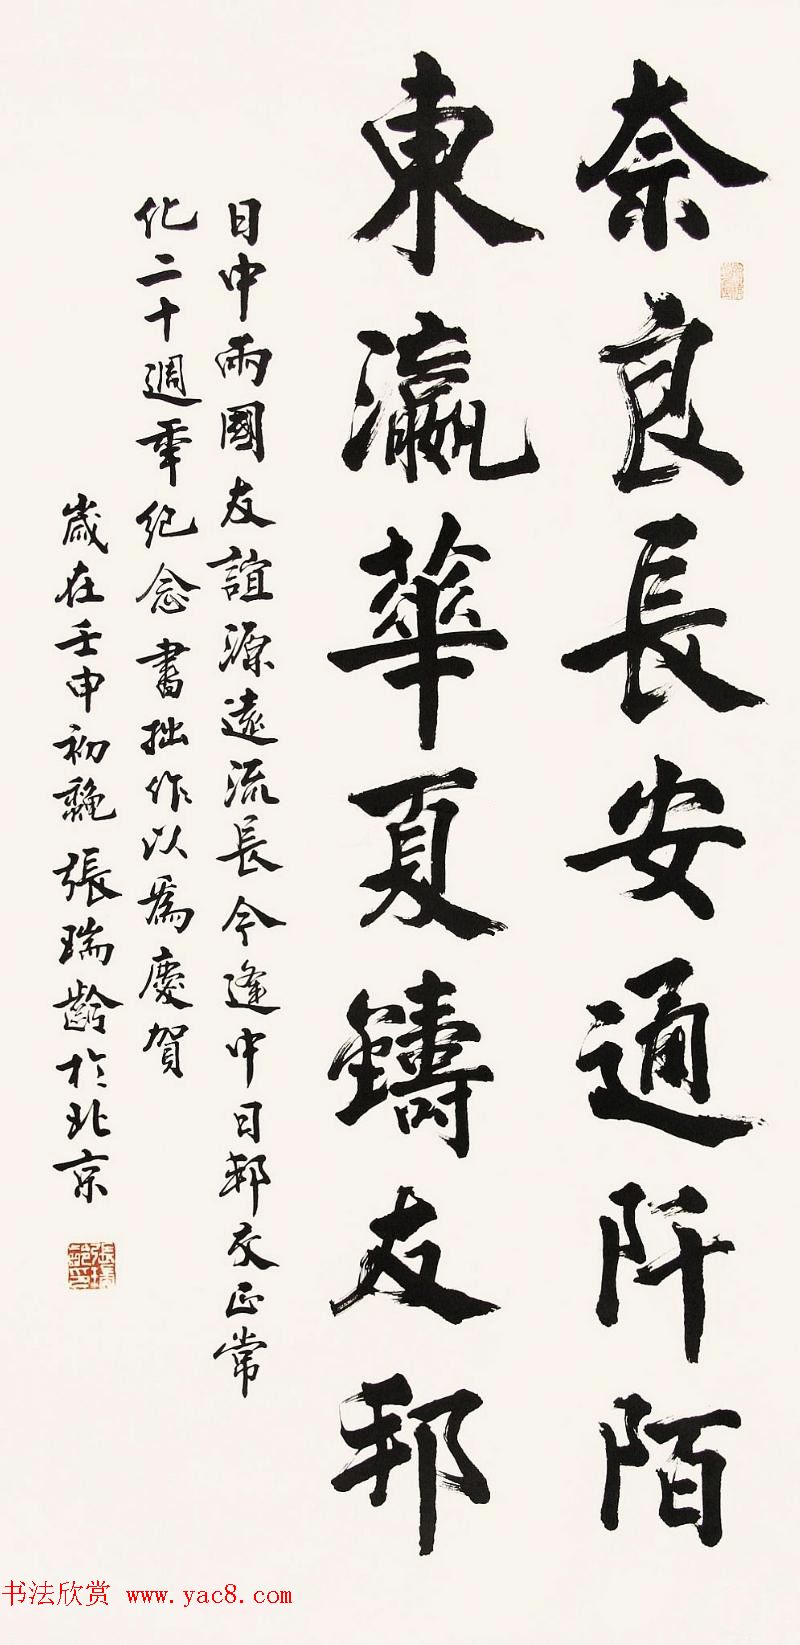 奈良長安通阡陌
東瀛華夏鑄友邦
日中兩國友誼源遠流長今逢中日邦交正常
化二十週年紀念書拙作以為慶賀
歲在壬申初龝張瑞齡於北京
張瑞齡印
书法欣赏 www.yac8.com